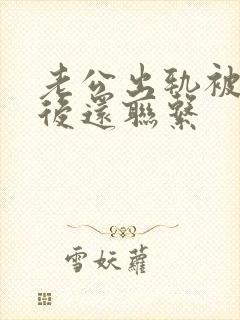 老公出轨被
後還聯繫
雪妖蘿